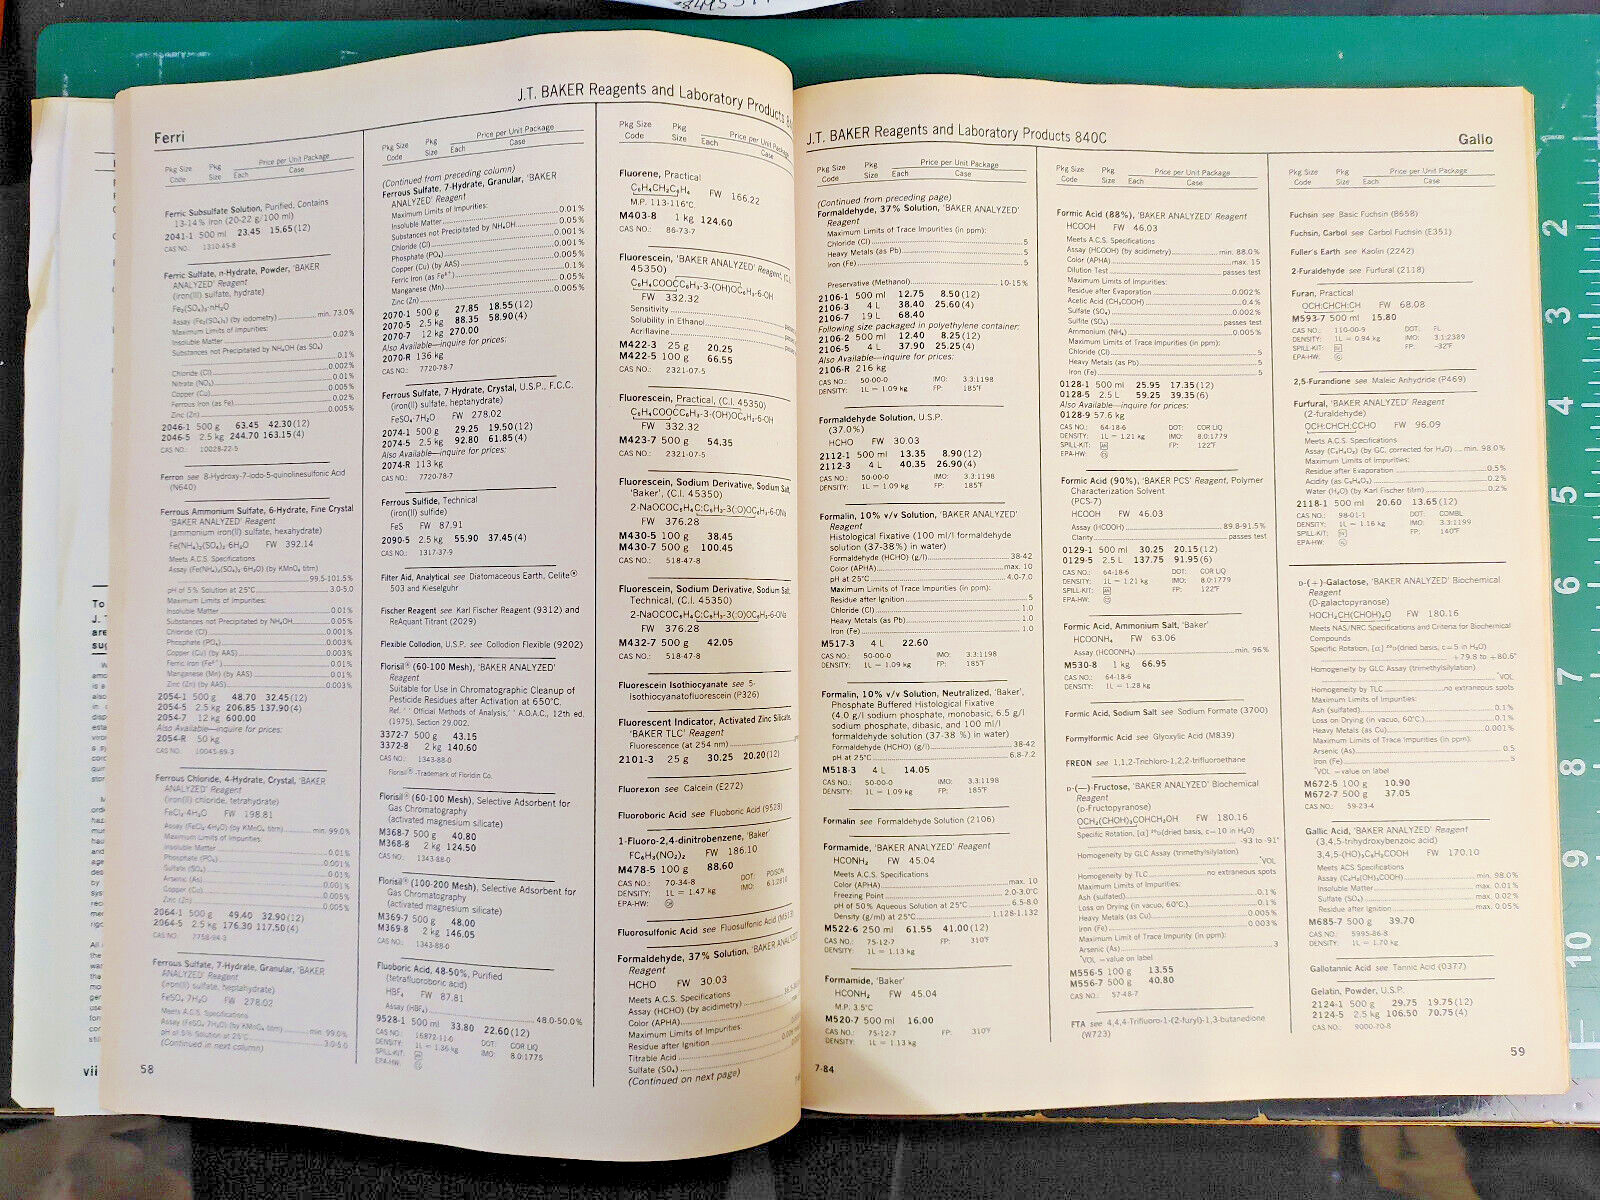 J.T. BAKER Reagents and Laboratory Products
Ferri
Pkg Size Pkg Price per Unit Package
Code Size Each Case
Ferric Subsulfate Solution, Purified, Contains
13-14% Iron (20-22 g/100 ml)
2041-1 500 ml 23.45 15.65(12)
CAS NO.: 1310-45-8
Ferric Sulfate, n-Hydrate, Powder, 'BAKER
ANALYZED' Reagent
(iron(III) sulfate, hydrate)
Fe₂(SO₄)₃·nH₂O
Assay (Fe₂(SO₄)₃) (by iodometry) min. 73.0%
Maximum Limits of Impurities:
Insoluble Matter 0.02%
Substances not Precipitated by NH₄OH (as SO₄)
0.1%
Chloride (Cl) 0.002%
Nitrate (NO₃) 0.01%
Copper (Cu) 0.005%
Ferrous Iron (as Fe) 0.02%
Zinc (Zn) 0.005%
2046-1 500 g 63.45 42.30(12)
2046-5 2.5 kg 244.70 163.15(4)
CAS NO.: 10028-22-5
Ferron see 8-Hydroxy-7-iodo-5-quinolinesulfonic Acid
(N640)
Ferrous Ammonium Sulfate, 6-Hydrate, Fine Crystal
'BAKER ANALYZED' Reagent
(ammonium iron(II) sulfate, hexahydrate)
Fe(NH₄)₂(SO₄)₂·6H₂O FW 392.14
Meets A.C.S. Specifications
Assay (Fe(NH₄)₂(SO₄)₂·6H₂O) (by KMnO₄ titrn)
99.5-101.5%
pH of 5% Solution at 25°C 3.0-5.0
Maximum Limits of Impurities:
Insoluble Matter 0.01%
Substances not Precipitated by NH₄OH 0.05%
Chloride (Cl) 0.001%
Phosphate (PO₄) 0.003%
Copper (Cu) (by AAS) 0.003%
Ferric Iron (Fe³⁺) 0.01%
Manganese (Mn) (by AAS) 0.01%
Zinc (Zn) (by AAS) 0.003%
2054-1 500 g 48.70 32.45(12)
2054-5 2.5 kg 206.85 137.90(4)
2054-7 12 kg 600.00
Also Available—inquire for prices:
2054-R 50 kg
CAS NO.: 10045-89-3
Ferrous Chloride, 4-Hydrate, Crystal, 'BAKER
ANALYZED' Reagent
(iron(II) chloride, tetrahydrate)
FeCl₂·4H₂O FW 198.81
Assay (FeCl₂·4H₂O) (by KMnO₄ titrn) min. 99.0%
Maximum Limits of Impurities:
Insoluble Matter 0.01%
Phosphate (PO₄) 0.001%
Sulfate (SO₄) 0.01%
Arsenic (As) 0.001%
Copper (Cu) 0.005%
Zinc (Zn) 0.005%
2064-1 500 g 49.40 32.90(12)
2064-5 2.5 kg 176.30 117.50(4)
CAS NO.: 7758-94-3
Ferrous Sulfate, 7-Hydrate, Granular, 'BAKER
ANALYZED' Reagent
(iron(II) sulfate, heptahydrate)
FeSO₄·7H₂O FW 278.02
Meets A.C.S. Specifications
Assay (FeSO₄·7H₂O) (by KMnO₄ titrn) min. 99.0%
pH of 5% Solution at 25°C 3.0-5.0
(Continued in next column)
58
Pkg Size Pkg Price per Unit Package
Code Size Each Case
(Continued from preceding column)
Ferrous Sulfate, 7-Hydrate, Granular, 'BAKER
ANALYZED' Reagent
Maximum Limits of Impurities:
Insoluble Matter 0.01%
Substances not Precipitated by NH₄OH 0.05%
Chloride (Cl) 0.001%
Phosphate (PO₄) 0.001%
Copper (Cu) (by AAS) 0.005%
Ferric Iron (as Fe³⁺) 0.1%
Manganese (Mn) 0.05%
Zinc (Zn) 0.005%
2070-1 500 g 27.85 18.55(12)
2070-5 2.5 kg 88.35 58.90(4)
2070-7 12 kg 270.00
Also Available—inquire for prices:
2070-R 136 kg
CAS NO.: 7720-78-7
Ferrous Sulfate, 7-Hydrate, Crystal, U.S.P., F.C.C.
(iron(II) sulfate, heptahydrate)
FeSO₄·7H₂O FW 278.02
2074-1 500 g 29.25 19.50(12)
2074-5 2.5 kg 92.80 61.85(4)
Also Available—inquire for prices:
2074-R 113 kg
CAS NO.: 7720-78-7
Ferrous Sulfide, Technical
(iron(II) sulfide)
FeS FW 87.91
2090-5 2.5 kg 55.90 37.45(4)
CAS NO.: 1317-37-9
Filter Aid, Analytical see Diatomaceous Earth, Celite®
503 and Kieselguhr
Fischer Reagent see Karl Fischer Reagent (9312) and
ReAquant Titrant (2029)
Flexible Collodion, U.S.P. see Collodion Flexible (9202)
Florisil® (60-100 Mesh), 'BAKER ANALYZED'
Reagent
Suitable for Use in Chromatographic Cleanup of
Pesticide Residues after Activation at 650°C.
Ref. ''Official Methods of Analysis,'' A.O.A.C., 12th ed.
(1975), Section 29.002.
3372-7 500 g 43.15
3372-8 2 kg 140.60
CAS NO.: 1343-88-0
Florisil®-Trademark of Floridin Co.
Florisil® (60-100 Mesh), Selective Adsorbent for
Gas Chromatography
(activated magnesium silicate)
M368-7 500 g 40.80
M368-8 2 kg 124.50
CAS NO.: 1343-88-0
Florisil® (100-200 Mesh), Selective Adsorbent for
Gas Chromatography
(activated magnesium silicate)
M369-7 500 g 48.00
M369-8 2 kg 146.05
CAS NO.: 1343-88-0
Fluoboric Acid, 48-50%, Purified
(tetrafluoroboric acid)
HBF₄ FW 87.81
Assay (HBF₄) 48.0-50.0%
9528-1 500 ml 33.80 22.60(12)
CAS NO.: 16872-11-0 DOT: COR LIQ
DENSITY: 1L = 1.36 kg IMO: 8.0:1775
SPILL-KIT:
EPA-HW:
Pkg Size Pkg Price per Unit Package
Code Size Each Case
Fluorene, Practical
C₆H₄CH₂C₆H₄ FW 166.22
M.P. 113-116°C
M403-8 1 kg 124.60
CAS NO.: 86-73-7
Fluorescein, 'BAKER ANALYZED' Reagent, (C.I.
45350)
C₆H₄COOCC₆H₃-3-(OH)OC₆H₃-6-OH
FW 332.32
Sensitivity
Solubility in Ethanol
Acriflavine
M422-3 25 g 20.25
M422-5 100 g 66.55
CAS NO.: 2321-07-5
Fluorescein, Practical, (C.I. 45350)
C₆H₄COOCC₆H₃-3-(OH)OC₆H₃-6-OH
FW 332.32
M423-7 500 g 54.35
CAS NO.: 2321-07-5
Fluorescein, Sodium Derivative, Sodium Salt,
'Baker', (C.I. 45350)
2-NaOCOC₆H₄C:C₆H₃-3(:O)OC₆H₃-6-ONa
FW 376.28
M430-5 100 g 38.45
M430-7 500 g 100.45
CAS NO.: 518-47-8
Fluorescein, Sodium Derivative, Sodium Salt,
Technical, (C.I. 45350)
2-NaOCOC₆H₄C:C₆H₃-3-(:O)OC₆H₃-6-ONa
FW 376.28
M432-7 500 g 42.05
CAS NO.: 518-47-8
Fluorescein Isothiocyanate see 5-
Isothiocyanatofluorescein (P326)
Fluorescent Indicator, Activated Zinc Silicate,
'BAKER TLC' Reagent
Fluorescence (at 254 nm)
2101-3 25 g 30.25 20.20(12)
Fluorexon see Calcein (E272)
Fluoroboric Acid see Fluoboric Acid (9528)
1-Fluoro-2,4-dinitrobenzene, 'Baker'
FC₆H₃(NO₂)₂ FW 186.10
M478-5 100 g 88.60
CAS NO.: 70-34-8 DOT: POISON
DENSITY: 1L = 1.47 kg IMO: 6.1:2810
EPA-HW:
Fluorosulfonic Acid see Fluosulfonic Acid (M513)
Formaldehyde, 37% Solution, 'BAKER ANALYZED'
Reagent
HCHO FW 30.03
Meets A.C.S. Specifications
Assay (HCHO) (by acidimetry)
Color (APHA)
Maximum Limits of Impurities
Residue after Ignition
Titrable Acid
Sulfate (SO₄)
(Continued on next page)
J.T. BAKER Reagents and Laboratory Products 840C
Gallo
Pkg Size Pkg Price per Unit Package
Code Size Each Case
(Continued from preceding page)
Formaldehyde, 37% Solution, 'BAKER ANALYZED'
Reagent
Maximum Limits of Trace Impurities (in ppm):
Chloride (Cl) 5
Heavy Metals (as Pb) 5
Iron (Fe) 5
Preservative (Methanol) 10-15%
2106-1 500 ml 12.75 8.50(12)
2106-3 4 L 38.40 25.60(4)
2106-7 19 L 68.40
Following size packaged in polyethylene container:
2106-2 500 ml 12.40 8.25(12)
2106-5 4 L 37.90 25.25(4)
Also Available—inquire for prices:
2106-R 216 kg
CAS NO.: 50-00-0 IMO: 3.3:1198
DENSITY: 1L = 1.09 kg FP: 185°F
Formaldehyde Solution, U.S.P.
(37.0%)
HCHO FW 30.03
2112-1 500 ml 13.35 8.90(12)
2112-3 4 L 40.35 26.90(4)
CAS NO.: 50-00-0 IMO: 3.3:1198
DENSITY: 1L = 1.09 kg FP: 185°F
Formalin, 10% v/v Solution, 'BAKER ANALYZED'
Reagent
Histological Fixative (100 ml/l formaldehyde
solution (37-38%) in water)
Formaldehyde (HCHO) (g/l) 38-42
Color (APHA) max. 10
pH at 25°C 4.0-7.0
Maximum Limits of Trace Impurities (in ppm):
Residue after Ignition 5
Chloride (Cl) 1.0
Heavy Metals (as Pb) 1.0
Iron (Fe) 1.0
M517-3 4 L 22.60
CAS NO.: 50-00-0 IMO: 3.3:1198
DENSITY: 1L = 1.09 kg FP: 185°F
Formalin, 10% v/v Solution, Neutralized, 'Baker',
Phosphate Buffered Histological Fixative
(4.0 g/l sodium phosphate, monobasic, 6.5 g/l
sodium phosphate, dibasic, and 100 ml/l
formaldehyde solution (37-38 %) in water)
Formaldehyde (HCHO) (g/l) 38-42
pH at 25°C 6.8-7.2
M518-3 4 L 14.05
CAS NO.: 50-00-0 IMO: 3.3:1198
DENSITY: 1L = 1.09 kg FP: 185°F
Formalin see Formaldehyde Solution (2106)
Formamide, 'BAKER ANALYZED' Reagent
HCONH₂ FW 45.04
Meets A.C.S. Specifications
Color (APHA) max. 10
Freezing Point 2.0-3.0°C
pH of 50% Aqueous Solution at 25°C 6.5-8.0
Density (g/ml) at 25°C 1.128-1.132
M522-6 250 ml 61.55 41.00(12)
CAS NO.: 75-12-7 FP: 310°F
DENSITY: 1L = 1.13 kg
Formamide, 'Baker'
HCONH₂ FW 45.04
M.P. 3.5°C
M520-7 500 ml 16.00
CAS NO.: 75-12-7 FP: 310°F
DENSITY: 1L = 1.13 kg
7-84
Pkg Size Pkg Price per Unit Package
Code Size Each Case
Formic Acid (88%), 'BAKER ANALYZED' Reagent
HCOOH FW 46.03
Meets A.C.S. Specifications
Assay (HCOOH) (by acidimetry) min. 88.0%
Color (APHA) max. 15
Dilution Test passes test
Maximum Limits of Impurities:
Residue after Evaporation 0.002%
Acetic Acid (CH₃COOH) 0.4%
Sulfate (SO₄) 0.002%
Sulfite (SO₃) passes test
Ammonium (NH₄) 0.005%
Maximum Limits of Trace Impurities (in ppm):
Chloride (Cl) 5
Heavy Metals (as Pb) 5
Iron (Fe) 5
0128-1 500 ml 25.95 17.35(12)
0128-5 2.5 L 59.25 39.35(6)
Also Available—inquire for prices:
0128-9 57.6 kg
CAS NO.: 64-18-6 DOT: COR LIQ
DENSITY: 1L = 1.21 kg IMO: 8.0:1779
SPILL-KIT: FP: 122°F
EPA-HW:
Formic Acid (90%), 'BAKER PCS' Reagent, Polymer
Characterization Solvent
(PCS-7)
HCOOH FW 46.03
Assay (HCOOH) 89.8-91.5%
Clarity passes test
0129-1 500 ml 30.25 20.15(12)
0129-5 2.5 L 137.75 91.95(6)
CAS NO.: 64-18-6 DOT: COR LIQ
DENSITY: 1L = 1.21 kg IMO: 8.0:1779
SPILL-KIT: FP: 122°F
EPA-HW:
Formic Acid, Ammonium Salt, 'Baker'
HCOONH₄ FW 63.06
Assay (HCOONH₄) min. 96%
M530-8 1 kg 66.95
CAS NO.: 64-18-6
DENSITY: 1L = 1.28 kg
Formic Acid, Sodium Salt see Sodium Formate (3700)
Formylformic Acid see Glyoxylic Acid (M839)
FREON see 1,1,2-Trichloro-1,2,2-trifluoroethane
D-(—)-Fructose, 'BAKER ANALYZED' Biochemical
Reagent
(D-Fructopyranose)
OCH₂(CHOH)₃COHCH₂OH FW 180.16
Specific Rotation, [α] ²⁵D(dried basis, c=10 in H₂O)
-93 to -91°
Homogeneity by GLC Assay (trimethylsilylation)
*VOL
Homogeneity by TLC no extraneous spots
Maximum Limits of Impurities:
Ash (sulfated) 0.1%
Loss on Drying (in vacuo, 60°C.) 0.1%
Heavy Metals (as Pb) 0.005%
Iron (Fe) 0.003%
Maximum Limits of Trace Impurity (in ppm):
Arsenic (As) 3
*VOL —value on label
M556-5 100 g 13.55
M556-7 500 g 40.80
CAS NO.: 57-48-7
FTA see 4,4,4-Trifluoro-1-(2-furyl)-1,3-butanedione
(W723)
Pkg Size Pkg Price per Unit Package
Code Size Each Case
Fuchsin see Basic Fuchsin (B658)
Fuchsin, Carbol see Carbol Fuchsin (E351)
Fuller's Earth see Kaolin (2242)
2-Furaldehyde see Furfural (2118)
Furan, Practical
OCH:CHCH:CH FW 68.08
M593-7 500 ml 15.80
CAS NO.: 110-00-9 DOT: FL
DENSITY: 1L = 0.94 kg IMO: 3.1:2389
SPILL-KIT: FP: -32°F
EPA-HW:
2,5-Furandione see Maleic Anhydride (P469)
Furfural, 'BAKER ANALYZED' Reagent
(2-furaldehyde)
OCH:CHCH:CCHO FW 96.09
Meets A.C.S. Specifications
Assay (C₅H₄O₂) (by GC, corrected for H₂O) min. 98.0%
Maximum Limits of Impurities:
Residue after Evaporation 0.5%
Acidity (as C₅H₄O₃) 0.2%
Water (H₂O) (by Karl Fischer titrn) 0.2%
2118-1 500 ml 20.60 13.65(12)
CAS NO.: 98-01-1 DOT: COMBL
DENSITY: 1L = 1.16 kg IMO: 3.3:1199
SPILL-KIT: FP: 140°F
EPA-HW:
D-(+)-Galactose, 'BAKER ANALYZED' Biochemical
Reagent
(D-galactopyranose)
HOCH₂CH(CHOH)₄O FW 180.16
Meets NAS/NRC Specifications and Criteria for Biochemical
Compounds
Specific Rotation, [α] ²⁵D(dried basis, c=5 in H₂O)
+79.8 to +80.6°
Homogeneity by GLC Assay (trimethylsilylation)
*VOL
Homogeneity by TLC no extraneous spots
Maximum Limits of Impurities:
Ash (sulfated) 0.1%
Loss on Drying (in vacuo, 60°C.) 0.1%
Heavy Metals (as Cu) 0.001%
Maximum Limits of Trace Impurities (in ppm):
Arsenic (As) 0.5
Iron (Fe) 5
*VOL —value on label
M672-5 100 g 10.90
M672-7 500 g 37.05
CAS NO.: 59-23-4
Gallic Acid, 'BAKER ANALYZED' Reagent
(3,4,5-trihydroxybenzoic acid)
3,4,5-(HO)₃C₆H₂COOH FW 170.10
Meets ACS Specifications
Assay (C₆H₂(OH)₃COOH) min. 98.0%
Insoluble Matter max. 0.01%
Sulfate (SO₄) max. 0.02%
Residue after Ignition max. 0.05%
M685-7 500 g 39.70
CAS NO.: 5995-86-8
DENSITY: 1L = 1.70 kg
Gallotannic Acid see Tannic Acid (0377)
Gelatin, Powder, U.S.P.
2124-1 500 g 29.75 19.75(12)
2124-5 2.5 kg 106.50 70.75(4)
CAS NO.: 9000-70-8
59
vii
2
3
4
5
6
7
8
9
10